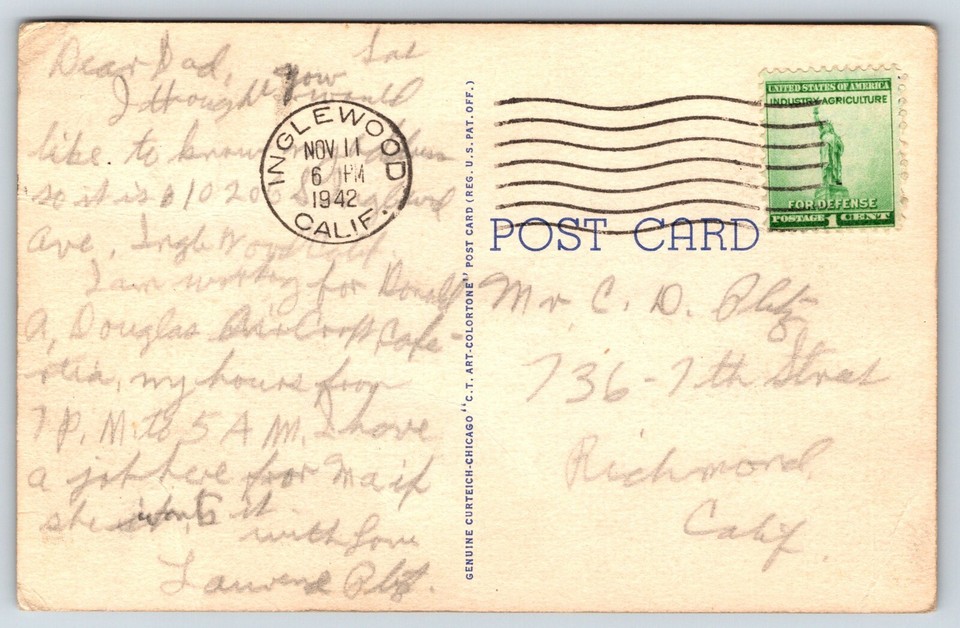 Sat
Dear Dad,
I thought you would
like to know my address
so it is 10 20
Ave, Inglewood Calif.
I am working for Donald
A, Douglas Air Craft Cafe-
teria, my hours from
7 P. M. to 5 A M. I have
a job here for Ma if
she wants it.
with Love
INGLEWOOD
NOV 11
6 PM
1942
CALIF.
GENUINE CURTEICH-CHICAGO "C.T. ART-COLORTONE" POST CARD (REG. U.S. PAT. OFF.)
UNITED STATES OF AMERICA
INDUSTRY AGRICULTURE
FOR DEFENSE
POSTAGE 1 CENT
POST CARD
Mr, C. D.
736-7th Street
Richmond
Calif.